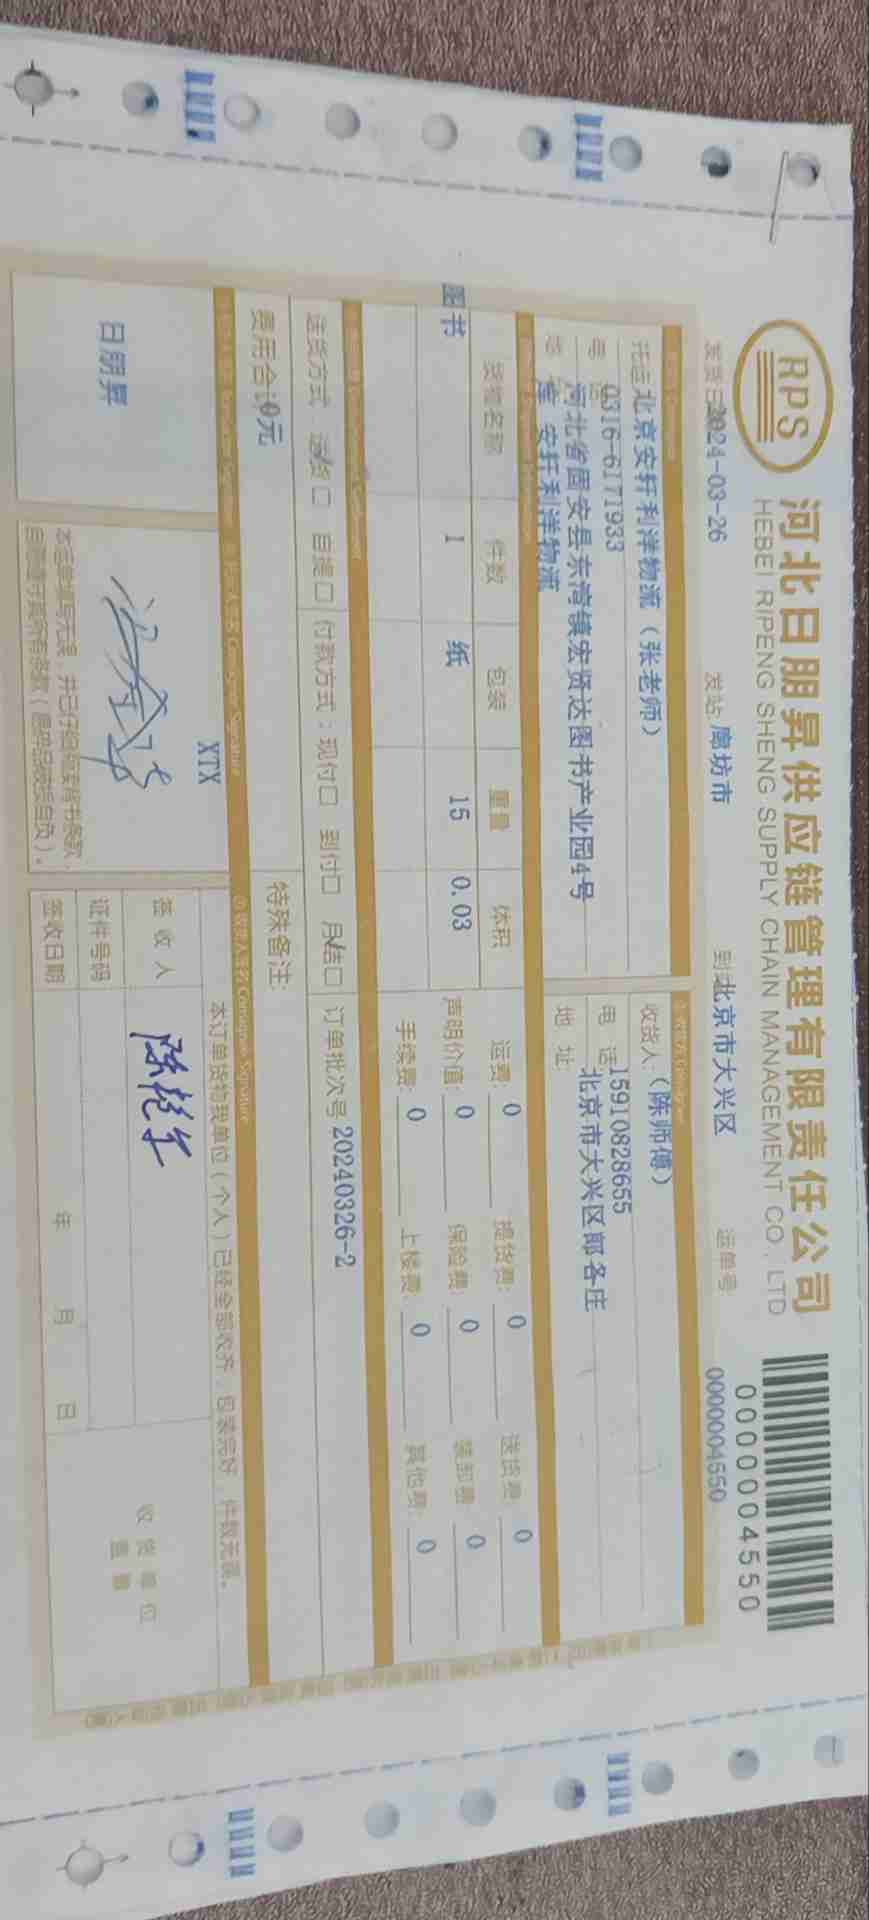 RPS
河北日朋昇供应链管理有限责任公司
HEBEI RIPENG SHENG SUPPLY CHAIN MANAGEMENT CO., LTD
0000004550
发货日期 2024-03-26 发站 廊坊市 到站 北京市大兴区 运单号 0000004550
托运 北京安轩利洋物流(张老师) 收货人: (陈师傅)
电话 0316-6171933 电 话 15910828655
河北省固安县东湾镇宏贤达图书产业园4号 地 址: 北京市大兴区郎各庄
库 安轩利洋物流
货物名称 件数 包装 重量 体积 运费: 0 提货费: 0 送货费: 0
图书 1 纸 15 0.03 声明价值: 0 保险费: 0 装卸费: 0
手续费: 0 上楼费: 0 其他费: 0
送货方式 送货 自提 付款方式: 现付 到付 月结 订单批次号 20240326-2
费用合计 0元 特殊备注:
③ 收货人签名 Consignee Signature
XTX
本订单货物我单位(个人)已经全部收齐, 包装完好, 件数无误。
日朋昇
签 收 人
证件号码
签收日期 年 月 日
收 货 单 位
盖 章
本运单填写无误, 并已仔细阅读背书条款,